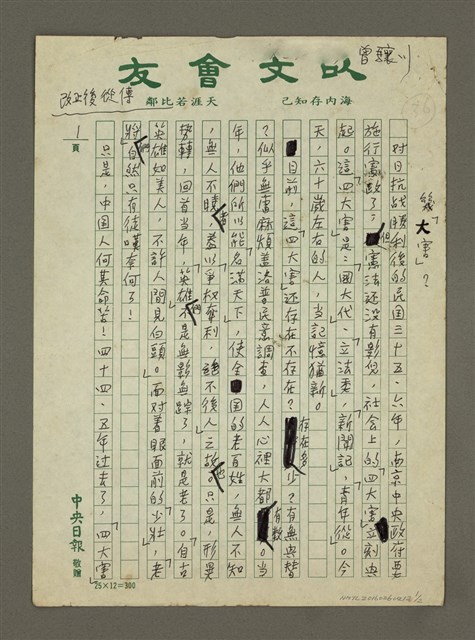 曾驤
以文會友
海內存知己 天涯若比鄰
改正後從傳
幾「大害」?
對日抗戰勝利後的民國三十五、六年,南京中央政府要
施行憲政了,但憲法还没有影兒,社会上的四大害立刻興
起。這「四大害」是:「國大代、立法委、新聞記、青年從」。今
天,六十歲左右的人,當記憶猶新。
目前,這「四大害」还存在不存在?存在多少?有無興替
?似乎無庸麻煩蓋洛普民意調查,人人心裡大都有數。當
年,他們所以能名滿天下,使全国的老百姓,無人不知
,無人不曉者,蓋以爭权奪利,絕不後人之故也。只是,形異
势轉,回首当年,「英雄」們不是無影無踪了,就是老了。自古
英雄如美人,不許人間見白頭。面对着眼面前的「少壯」,「老
將」們自然只有徒嘆奈何了!
只是,中国人何其命苦!四十四、五年过去了,「四大害」
1
頁
中央日報 敬贈
25×12=300